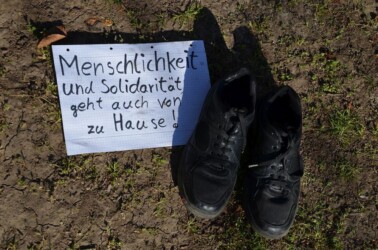 Menschlichkeit
und Solidarität
geht auch von
zu Hause!